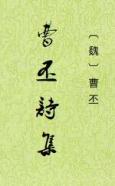 〔魏〕曹丕
曹丕詩集